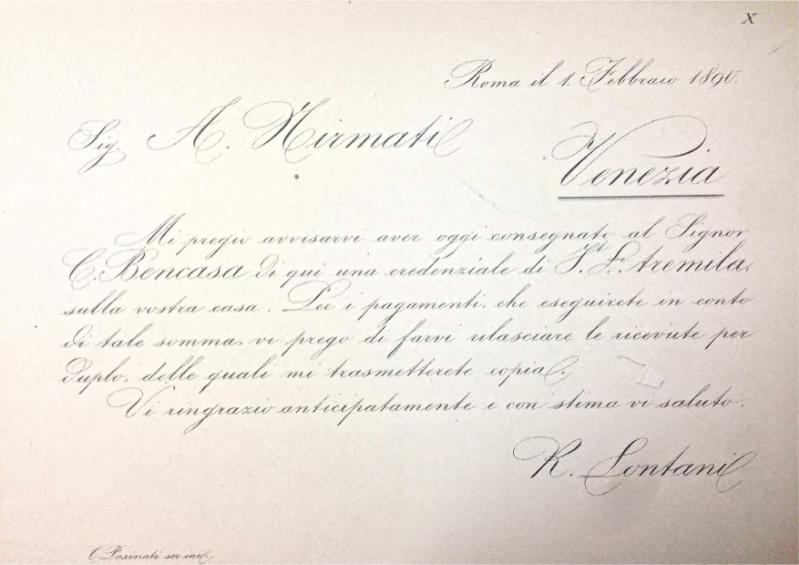 X
Roma il 1. Febbraio 1890.
Sig. A. Nirmati
Venezia
Mi pregio avvisarvi aver oggi consegnato al Signor
C. Bencasa di qui una credenziale di It. L. tremila,
sulla vostra casa. Per i pagamenti, che eseguirete in conto
di tale somma, vi prego di farvi rilasciare le ricevute per
duplo, delle quali mi trasmetterete copia.
Vi ringrazio anticipatamente e con stima vi saluto.
R. Lontani